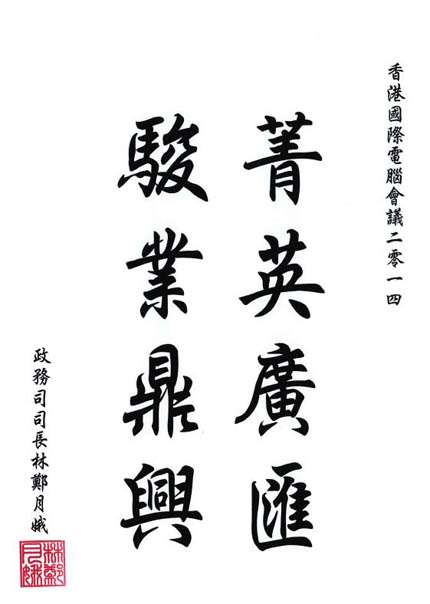 香港國際電腦會議二零一四
菁英廣匯
駿業鼎興
政務司司長林鄭月娥
林鄭月娥